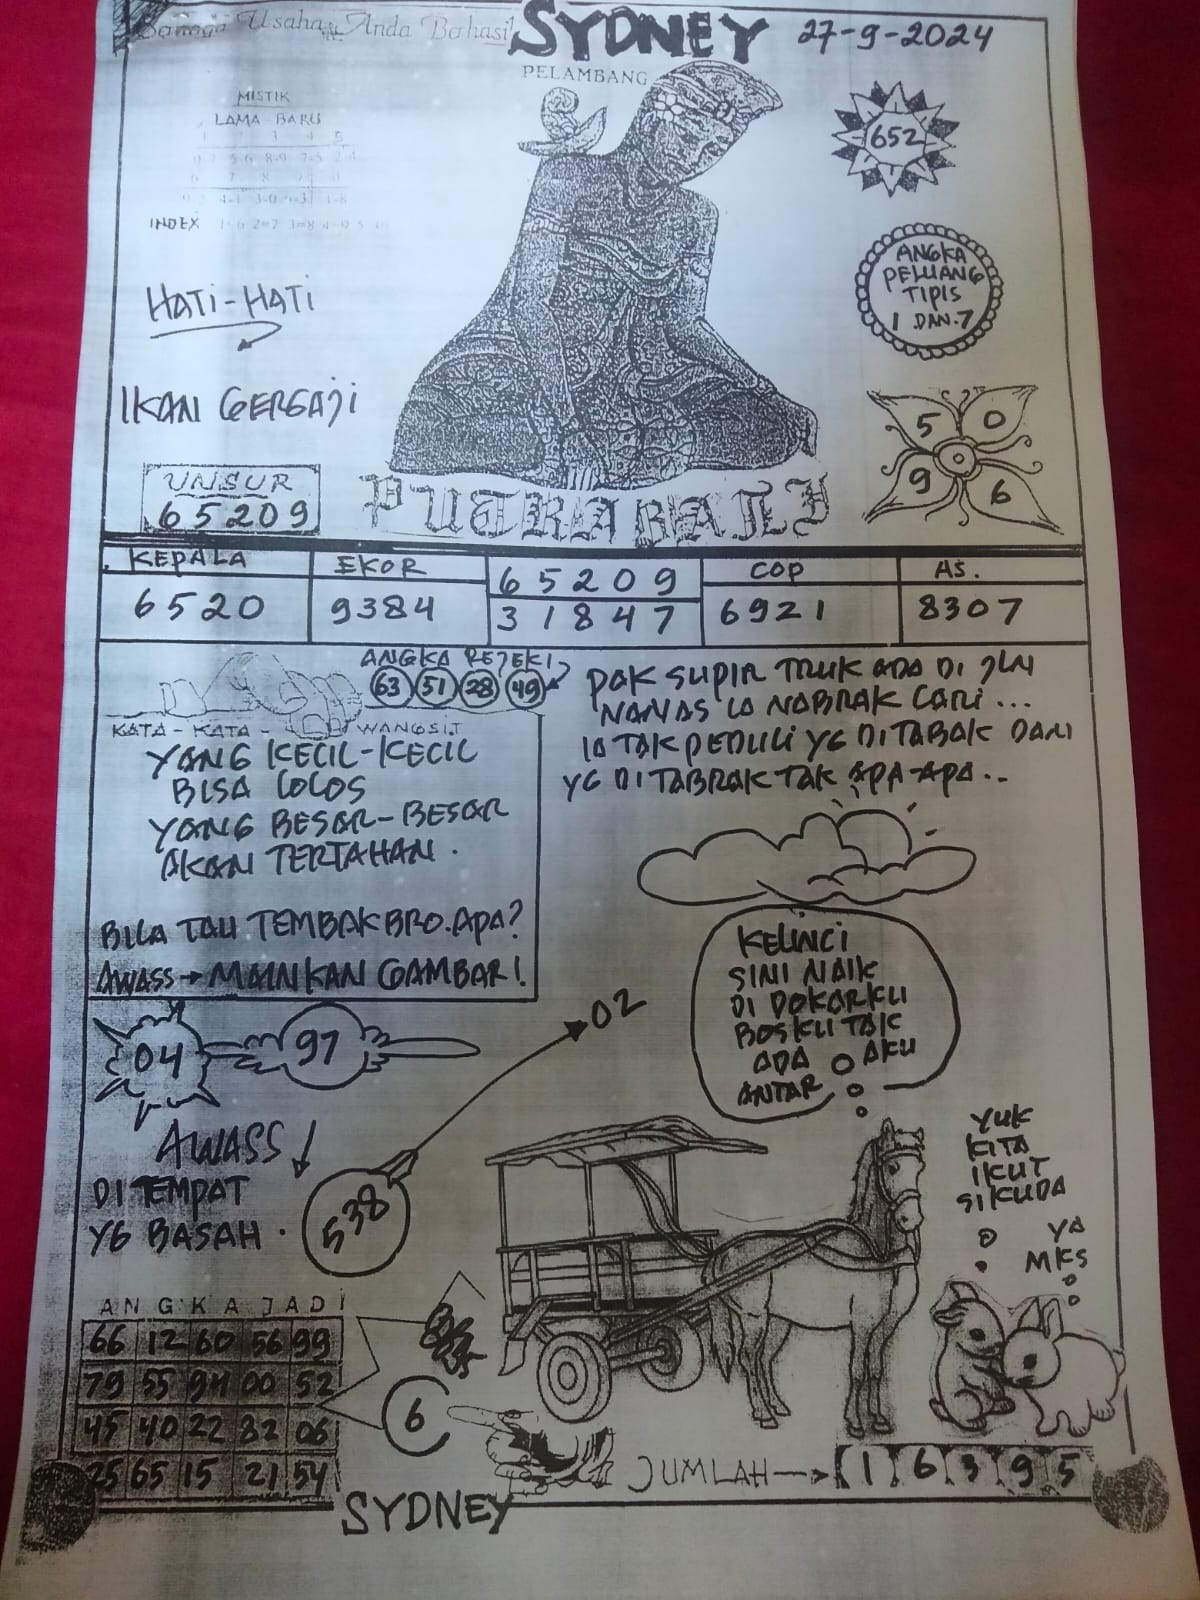 Semoga Usaha Anda Berhasil
SYDNEY 27-9-2024
PELAMBANG
MISTIK
LAMA BARU
INDEX 1=6 2=7 3=8 4=9 5
652
ANGKA
PELUANG
TIPIS
1 DAN.7
HATI-HATI
IKAN GERGAJI
5 0
9 6
UNSUR
65209
PUTRA BALI
KEPALA EKOR 65209 COP AS.
6520 9384 31847 6921 8307
ANGKA REJEKI
63 51 28 49
KATA - KATA - WANGSIT
YANG KECIL-KECIL
BISA LOLOS
YANG BESAR-BESAR
AKAN TERTAHAN.
BILA TAU TEMBAK BRO.APA?
AWASS→MAINKAN GAMBAR!
PAK SUPIR TRUK ADA DI JLN
NANAS IA NABRAK LARI...
IA TAK PEDULI YG DITABAK DAN
YG DITABRAK TAK APA-APA..
KELINCI
SINI NAIK
DI DOKARKU
BOSKU TAK
ADA AKU
ANTAR
04 97
02
AWASS
DI TEMPAT
YG BASAH.
538
YUK
KITA
IKUT
SIKUDA
YA
MKS
ANGKA JADI
66 12 60 56 99
79 55 94 00 52
45 40 22 82 06
25 65 15 21 54
6
JUMLAH→ 1 6 3 9 5
SYDNEY